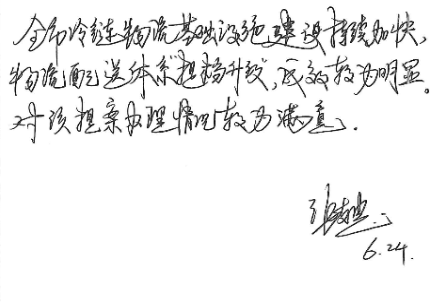 全市冷链物流基础设施建设持续加快,
物流配送体系提档升级,成效较为明显。
对该提案办理情况较为满意.
6.24.